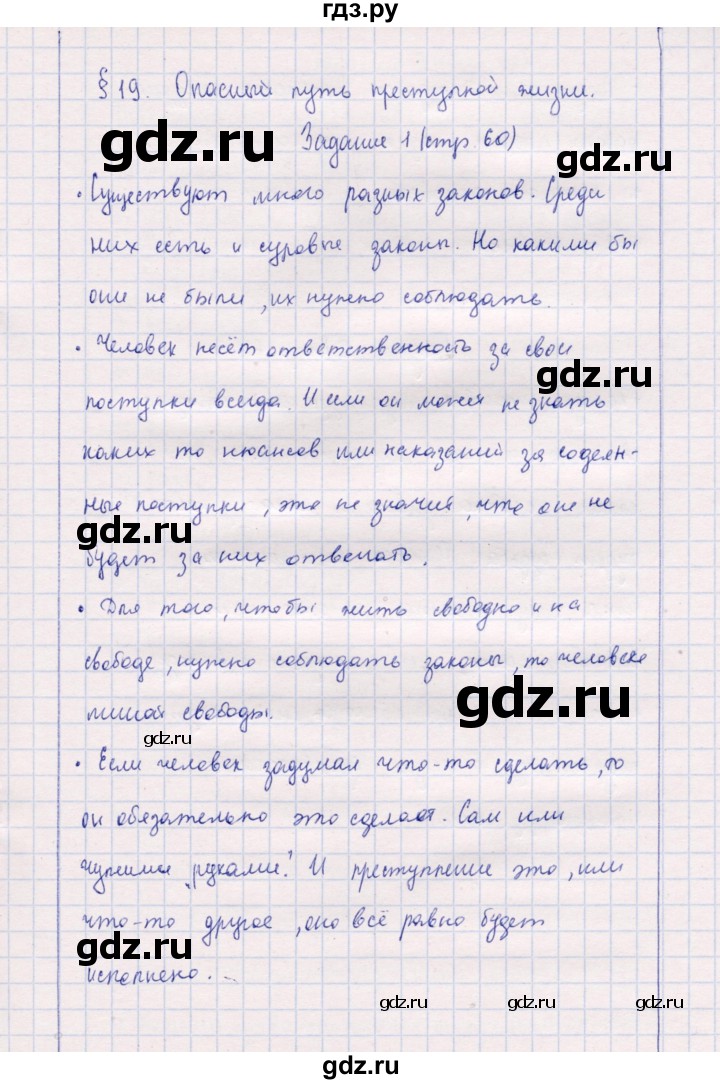 гдз.ру
§ 19. Опасный путь преступной жизни.
gdz.ru
Задание 1 (стр. 60)
gdz.ru
• Существуют много разных законов. Среди
них есть и суровые законы. Но какими бы
они не были, их нужно соблюдать.
• Человек несёт ответственность за свои
gdz.ru
поступки всегда. И если он может не знать
каких то нюансов или наказаний за содеян-
ные поступки, это не значит, что он не
gdz.ru
будет за них отвечать.
• Для того, чтобы жить свободно и на
свободе, нужно соблюдать законы, то человека
gdz.ru
лишат свободы.
gdz.ru
• Если человек задумал что-то сделать, то
он обязательно это сделает. Сам или
gdz.ru
чужими „руками". И преступление это, или
что-то другое, оно всё равно будет
gdz.ru
исполнено...
gdz.ru
gdz.ru
gdz.ru